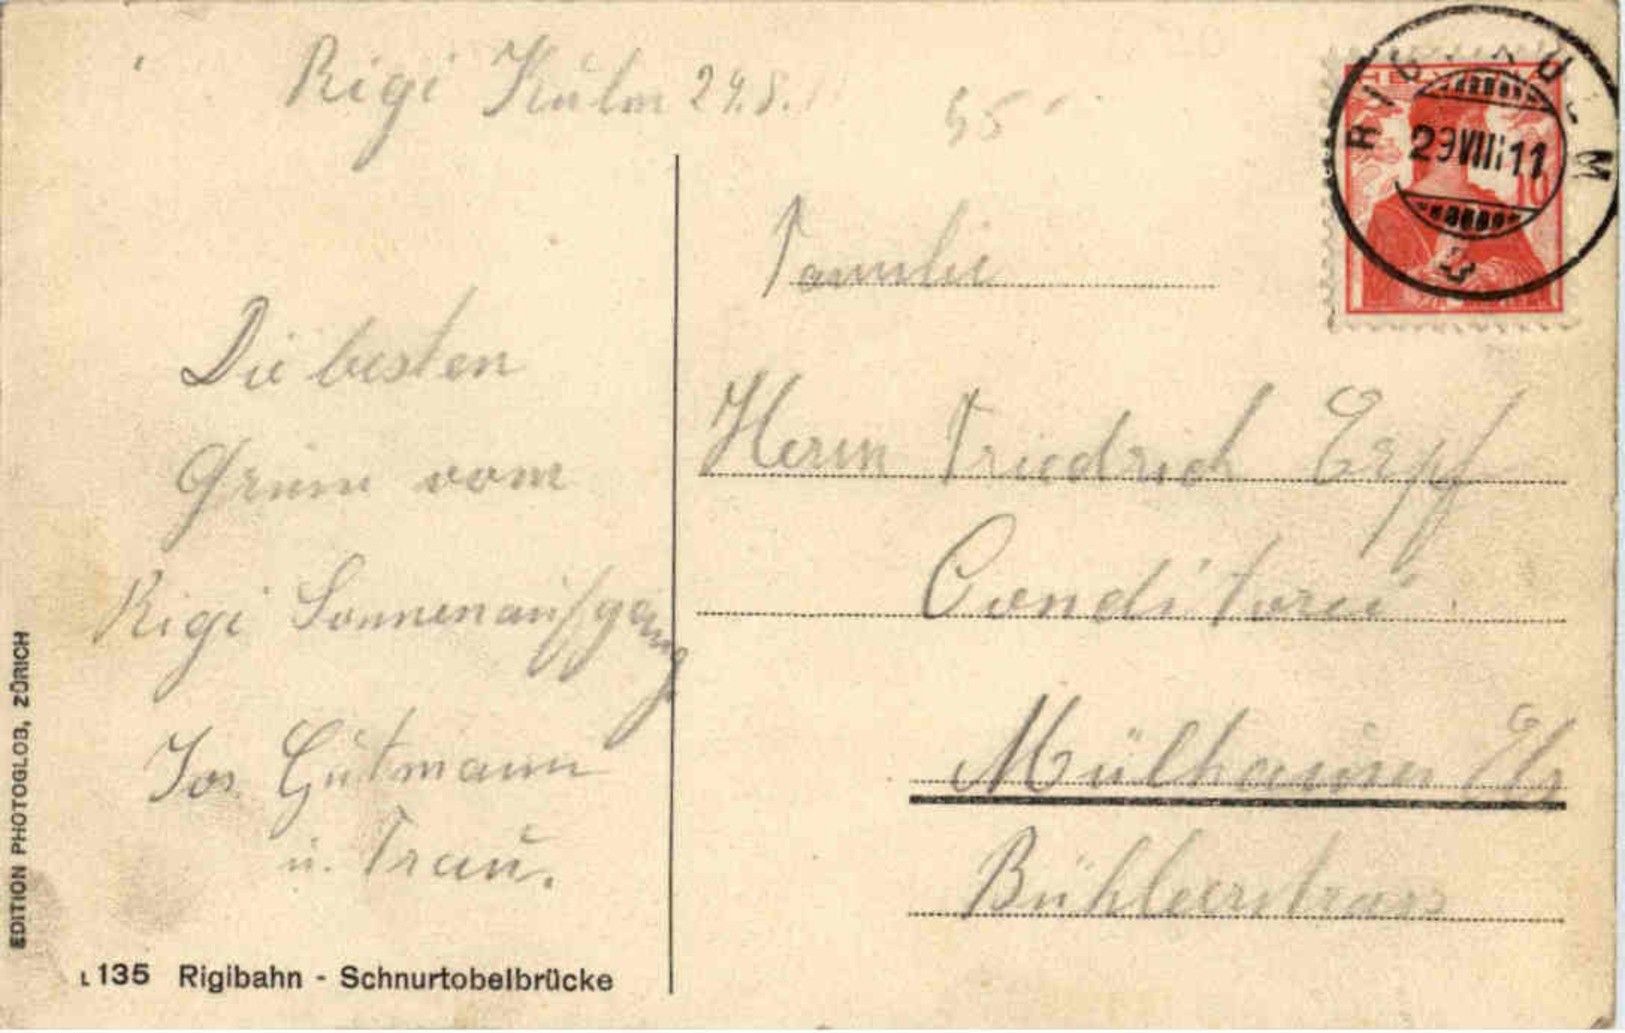 Rigi Kulm 29.8.11
55
HELVETIA
10
RIGI-KULM
29 VIII 11
Familie
Herrn Friedrich Erpf
Conditorei
Mülhausen Els
Bühlerstrass
Die besten
Grüsse vom
Rigi Sonnenaufgang
Jos. Gutmann
u. Frau.
EDITION PHOTOGLOB, ZÜRICH
L 135 Rigibahn - Schnurtobelbrücke